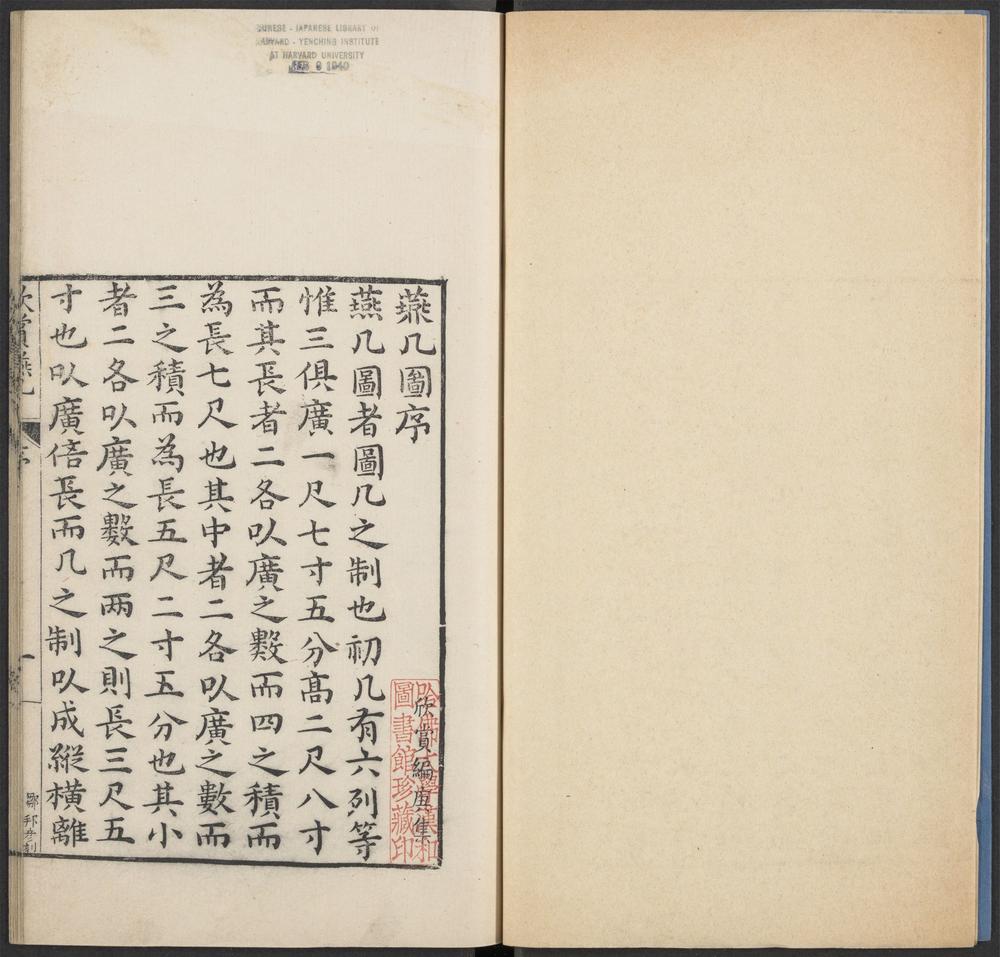 CHINESE - JAPANESE LIBRARY OF
HARVARD - YENCHING INSTITUTE
AT HARVARD UNIVERSITY
FEB 9 1940
燕几圖序
欣賞編庚集
哈佛大學漢和
圖書館珍藏印
燕几圖者圖几之制也初几有六列等
惟三俱廣一尺七寸五分髙二尺八寸
而其長者二各㕥廣之數而四之積而
為長七尺也其中者二各㕥廣之數而
三之積而為長五尺二寸五分也其小
者二各㕥廣之數而两之則長三尺五
寸也㕥廣倍長而几之制㕥成縱橫離
欣賞燕几
序
一
鄒邦彥刻